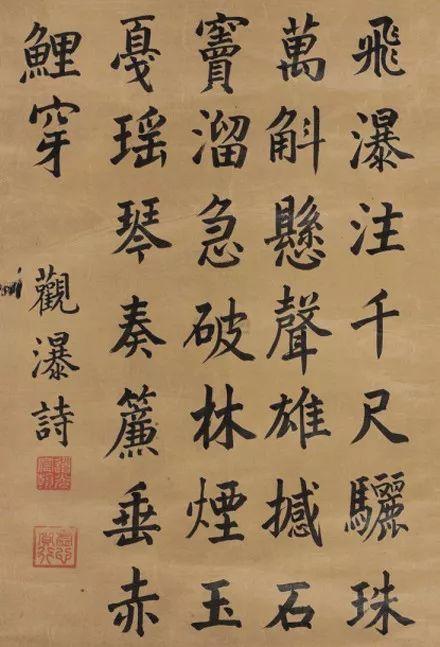 飛瀑注千尺驪珠
萬斛懸聲雄撼石
竇溜急破林煙玉
戛瑤琴奏簾垂赤
鯉穿
觀瀑詩